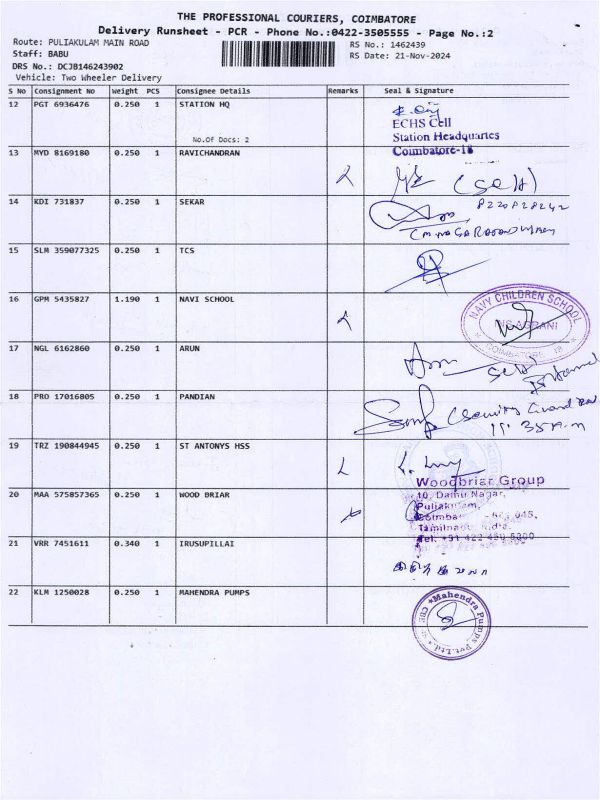 THE PROFESSIONAL COURIERS, COIMBATORE
Delivery Runsheet - PCR - Phone No.:0422-3505555 - Page No.:2
Route: PULIAKULAM MAIN ROAD
RS No.: 1462439
Staff: BABU
RS Date: 21-Nov-2024
DRS No.: DCJB146243902
Vehicle: Two Wheeler Delivery
S No Consignment No Weight PCS Consignee Details Remarks Seal & Signature
12 PGT 6936476 0.250 1 STATION HQ
No.Of Docs: 2
ECHS Cell
Station Headquartes
Coimbatore-18
13 MYD 8169180 0.250 1 RAVICHANDRAN
(Self)
14 KDI 731837 0.250 1 SEKAR
8220828242
15 SLM 359077325 0.250 1 TCS
16 GPM 5435827 1.190 1 NAVI SCHOOL
NAVY CHILDREN SCHOOL
INS AGRANI
COIMBATORE 18
17 NGL 6162860 0.250 1 ARUN
Self
18 PRO 17016805 0.250 1 PANDIAN
19 TRZ 190844945 0.250 1 ST ANTONYS HSS
20 MAA 575857365 0.250 1 WOOD BRIAR
Woodbriar Group
10, Damu Nagar,
Puliakulam,
Coimbatore - 641 045,
Tamilnadu, India.
21 VRR 7451611 0.340 1 IRUSUPILLAI
22 KLM 1250028 0.250 1 MAHENDRA PUMPS
Mahendra Pumps Pvt.Ltd.